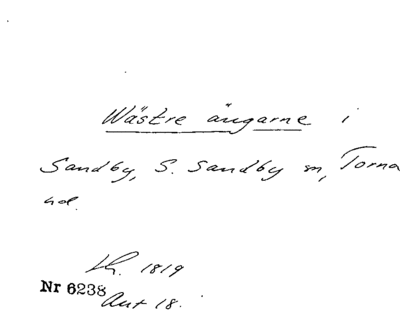 Wästre ängarne i
Sandby, S. Sandby sn, Torna
hd.
Lh. 1819
Nr 6238
Akt 18.